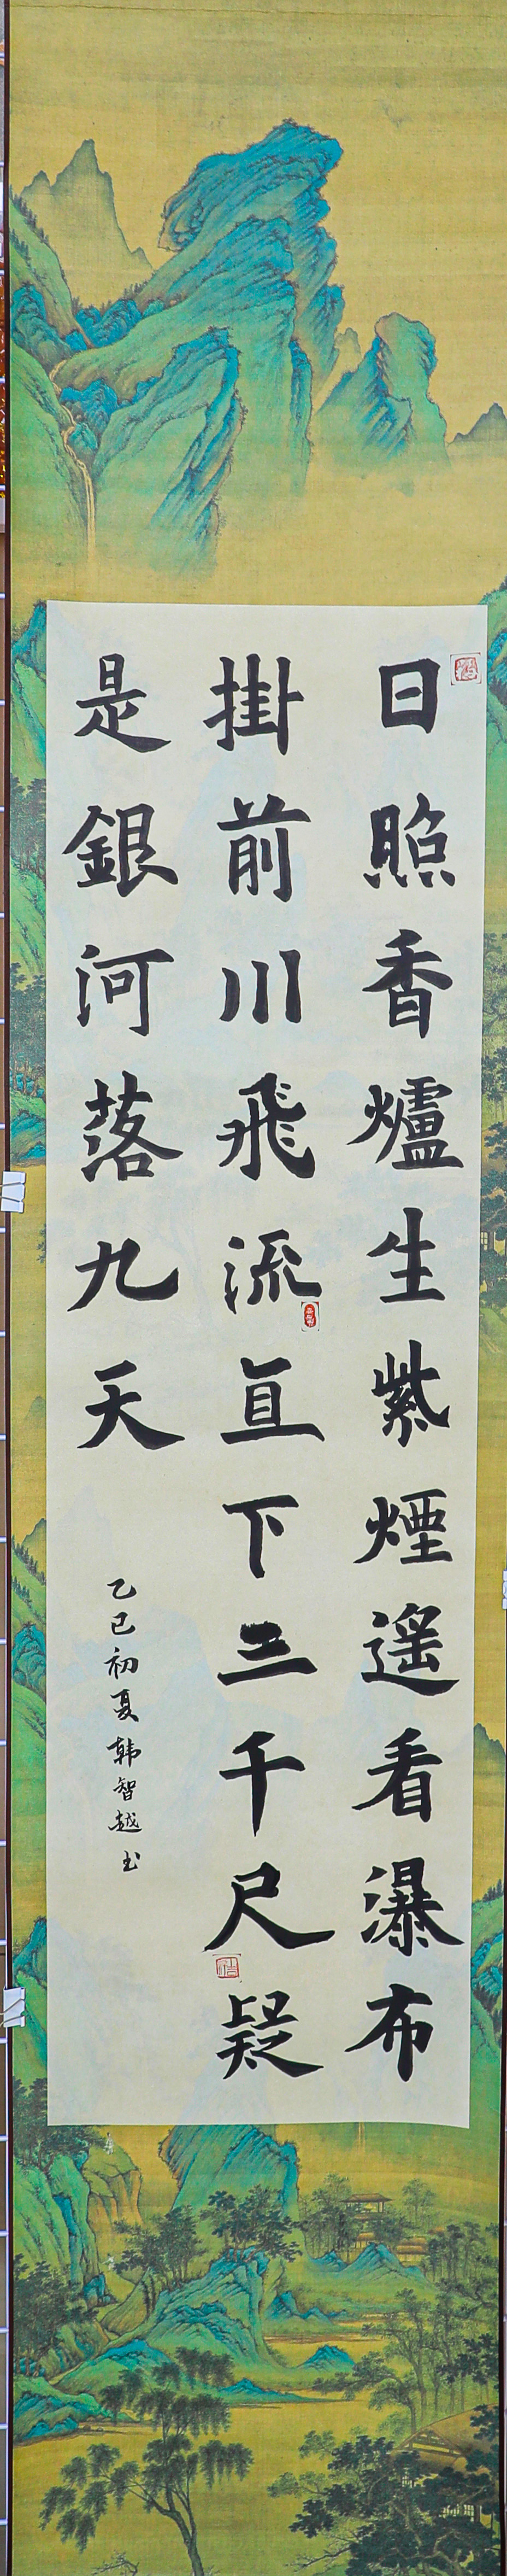 日照香爐生紫煙遥看瀑布
掛前川飛流直下三千尺疑
是銀河落九天
乙巳初夏韩智越书